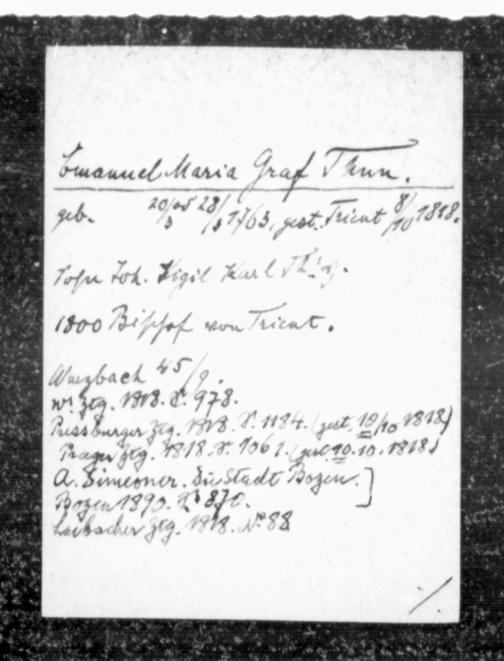 Emanuel Maria Graf Thun.
geb. 20/3 od 28/3 1763, gest. Trient 8/10 1818.
Sohn Joh. Vigil Karl Th.'s.
1800 Bischof von Trient.
Wurzbach 45/9.
W. Ztg. 1818. S. 978.
Pressburger Ztg. 1818. S. 1184. (gest. 10/10 1818)
Prager Ztg. 1818. S. 1061. (gest. 10.10.1818)
A. Simeoner. Die Stadt Bozen.
Bozen 1890. S. 870.
Laibacher Ztg. 1818. No 88